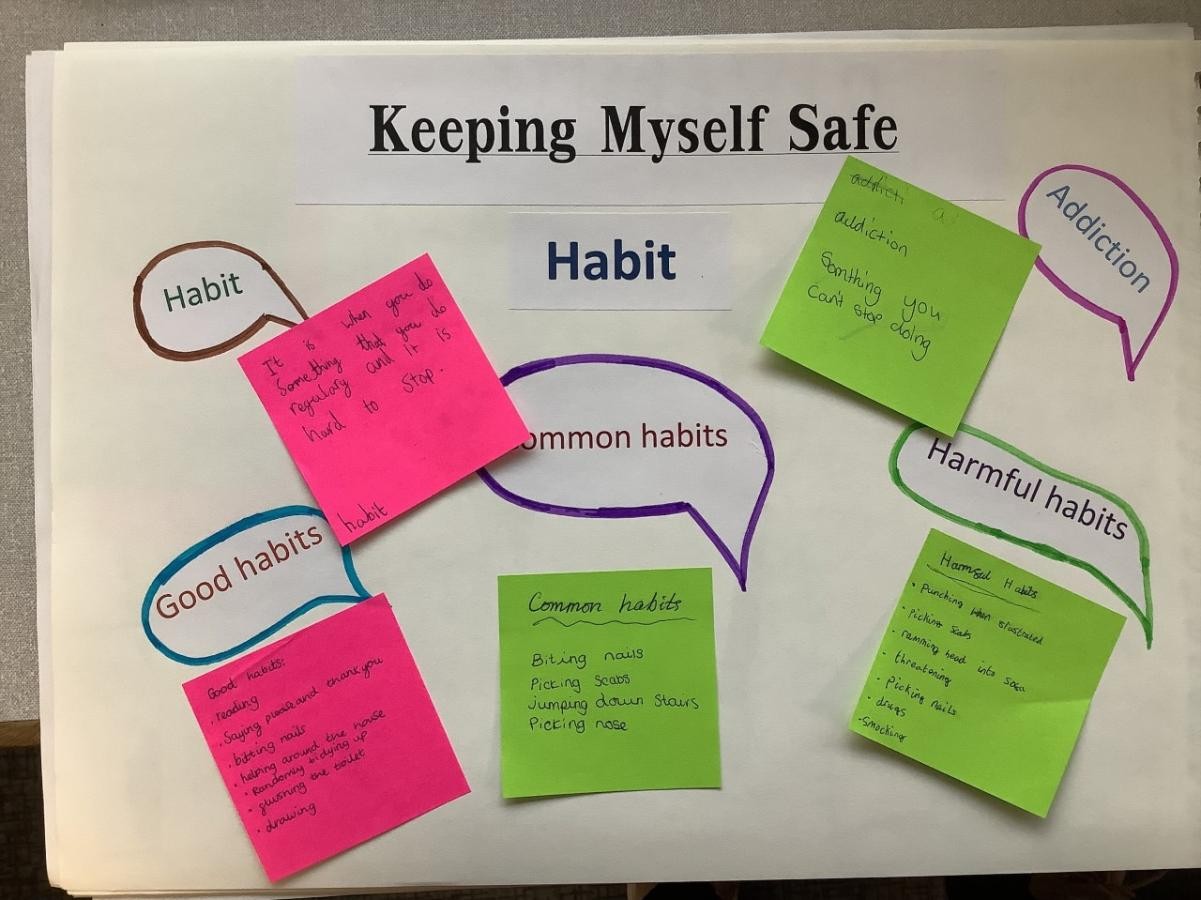 Keeping Myself Safe
Habit
Habit
It is when you do
Something that you do
regulary and it is
hard to stop.
habit
addicti
addiction
Somthing you
Can't stop doing
Addiction
ommon habits
Harmful habits
Good habits
Good habits:
• reading
• Saying please and thankyou
• bitting nails
• helping around the house
• Randomly tidying up
• flushing the toilet
• drawing
Common habits
Biting nails
Picking Scabs
Jumping down Stairs
Picking nose
Harmful Habits
• Punching when flustrated
• Picking scabs
• ramming head into sofa
• threatoning
• Picking nails
• drugs
• Smoching